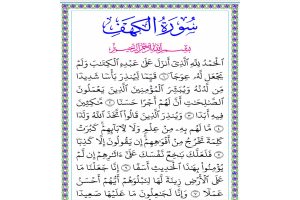 سُورَةُ الْكَهْفِ
بِسْمِ اللَّهِ الرَّحْمَٰنِ الرَّحِيمِ
الْحَمْدُ لِلَّهِ الَّذِي أَنْزَلَ عَلَىٰ عَبْدِهِ الْكِتَابَ وَلَمْ
يَجْعَلْ لَهُ عِوَجًا ۝١ قَيِّمًا لِيُنْذِرَ بَأْسًا شَدِيدًا
مِنْ لَدُنْهُ وَيُبَشِّرَ الْمُؤْمِنِينَ الَّذِينَ يَعْمَلُونَ
الصَّالِحَاتِ أَنَّ لَهُمْ أَجْرًا حَسَنًا ۝٢ مَاكِثِينَ
فِيهِ أَبَدًا ۝٣ وَيُنْذِرَ الَّذِينَ قَالُوا اتَّخَذَ اللَّهُ وَلَدًا
۝٤ مَا لَهُمْ بِهِ مِنْ عِلْمٍ وَلَا لِآبَائِهِمْ كَبُرَتْ
كَلِمَةً تَخْرُجُ مِنْ أَفْوَاهِهِمْ إِنْ يَقُولُونَ إِلَّا كَذِبًا
۝٥ فَلَعَلَّكَ بَاخِعٌ نَفْسَكَ عَلَىٰ آثَارِهِمْ إِنْ لَمْ
يُؤْمِنُوا بِهَٰذَا الْحَدِيثِ أَسَفًا ۝٦ إِنَّا جَعَلْنَا مَا
عَلَى الْأَرْضِ زِينَةً لَهَا لِنَبْلُوَهُمْ أَيُّهُمْ أَحْسَنُ
عَمَلًا ۝٧ وَإِنَّا لَجَاعِلُونَ مَا عَلَيْهَا صَعِيدًا